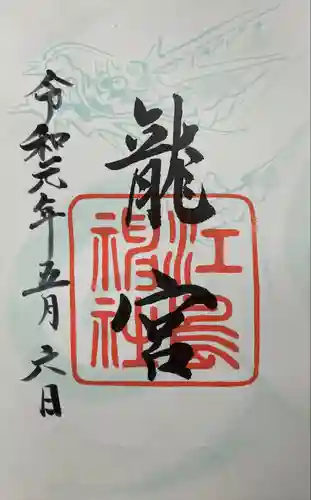 龍宮
江島神社
令和元年五月六日